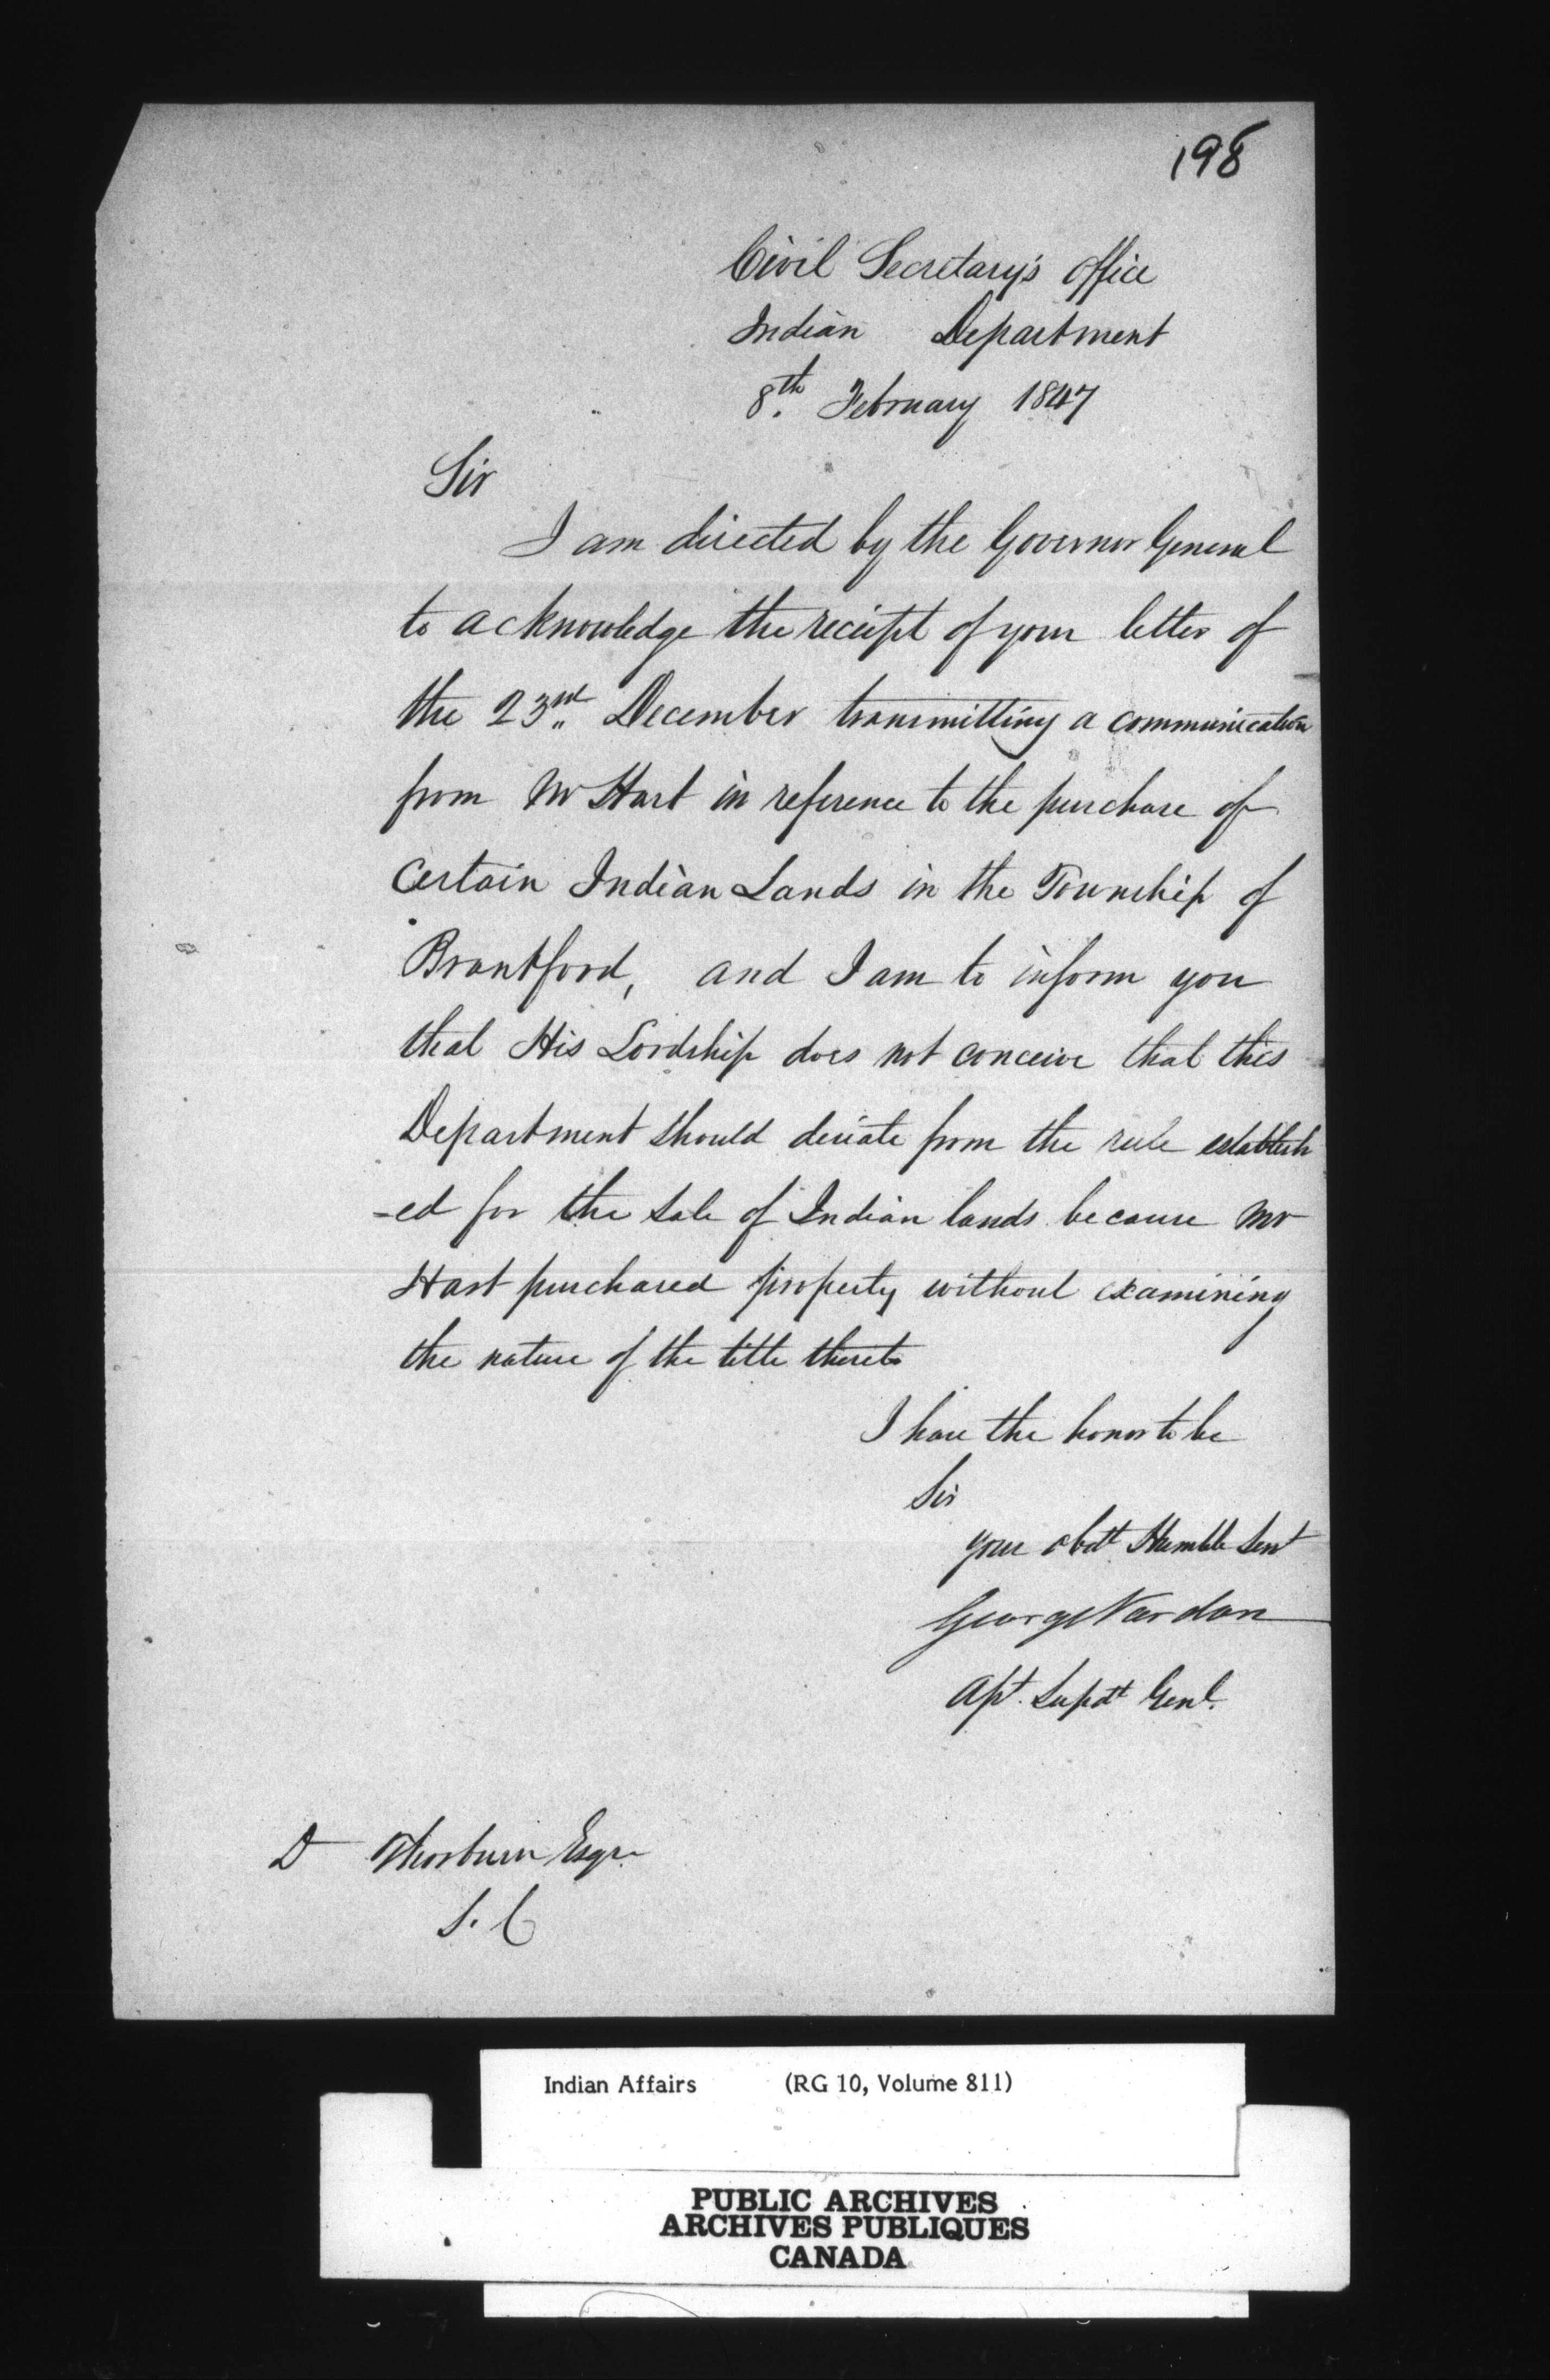 198
Civil Secretary's Office
Indian Department
8th. February 1847
Sir
I am directed by the Governor General
to acknowledge the receipt of your letter of
the 23rd December transmitting a communication
from Mr Hart in reference to the purchase of
Certain Indian Lands in the Township of
Brantford, and I am to inform you
that His Lordship does not conceive that this
Department should deviate from the rule establish
-ed for the sale of Indian lands because Mr
Hart purchased property without examining
the nature of the title thereto
I have the honor to be
Sir
your obdt Humble Servt
George Vardon
Apt. Supdt Genl.
D Thorburn Esqr.
S. C
Indian Affairs (RG 10, Volume 811)
PUBLIC ARCHIVES
ARCHIVES PUBLIQUES
CANADA